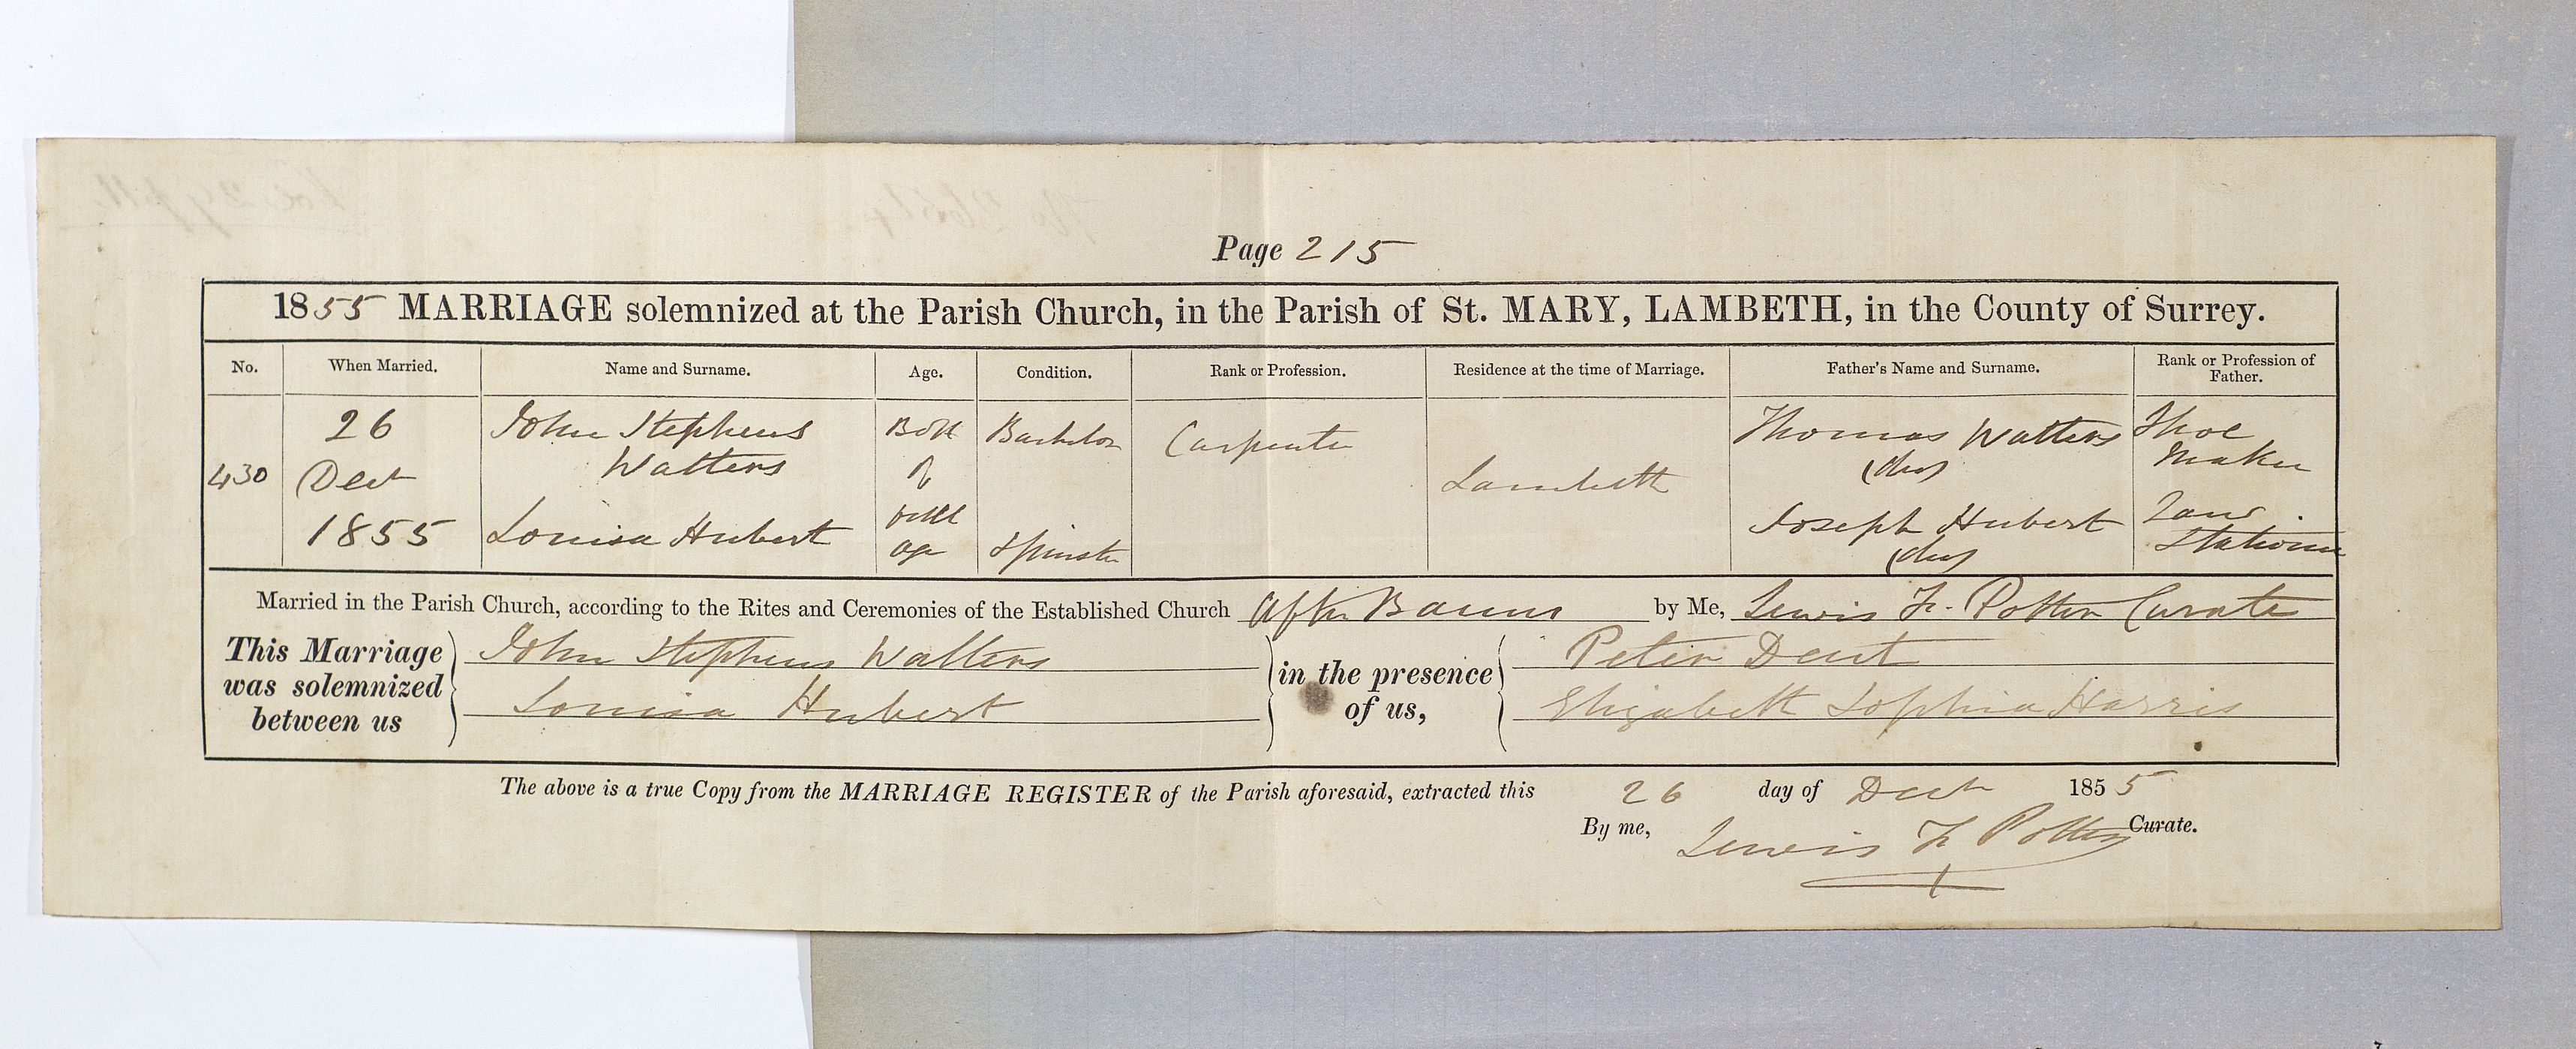 Page 215
1855 MARRIAGE solemnized at the Parish Church, in the Parish of St. MARY, LAMBETH, in the County of Surrey.
No. When Married. Name and Surname. Age. Condition. Rank or Profession. Residence at the time of Marriage. Father's Name and Surname. Rank or Profession of Father.
26 John Stephens Both Bachelor Carpenter Thomas Watters Shoe
430 Dec Watters of Lambeth (dec) Maker
1855 Louisa Hubert full Joseph Hubert Law
age Spinster (dec) Stationer
Married in the Parish Church, according to the Rites and Ceremonies of the Established Church After Banns by Me, Lewis F. Potter Curate
This Marriage was solemnized between us
John Stephens Watters
Louisa Hubert
in the presence of us,
Peter Dent
Elizabeth Sophia Harris
The above is a true Copy from the MARRIAGE REGISTER of the Parish aforesaid, extracted this 26 day of Dec 1855
By me, Lewis F Potter Curate.